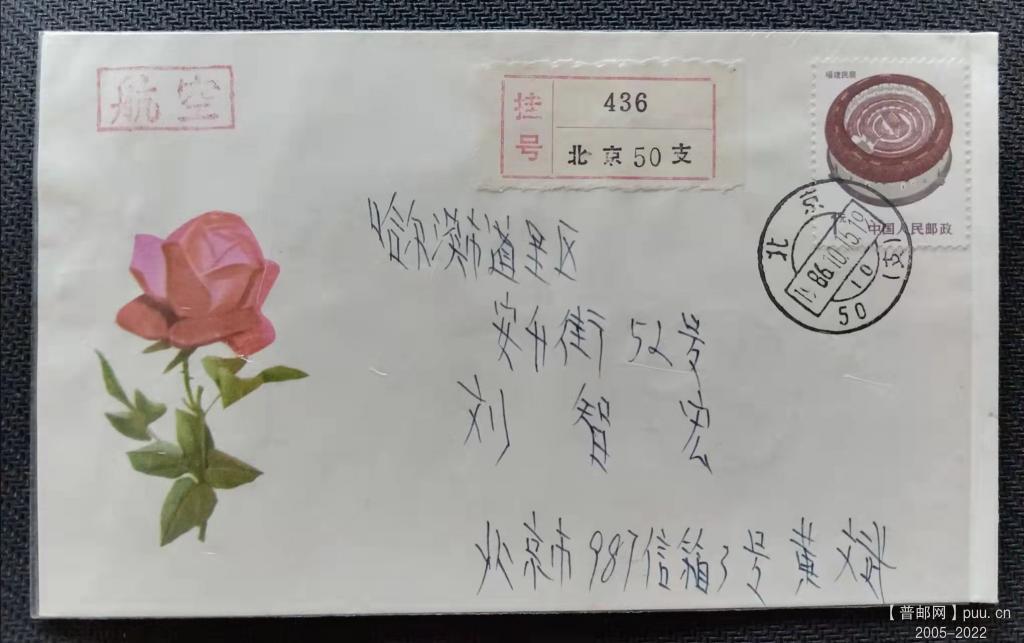 航空
挂号
436
北京50支
福建民居
中国人民邮政
北京
1986.10.15.19
50(支)
哈尔滨市道里区
安士街 52号
刘 智 宏
北京市987信箱3号 黄
【普邮网】puu.cn
2005-2022